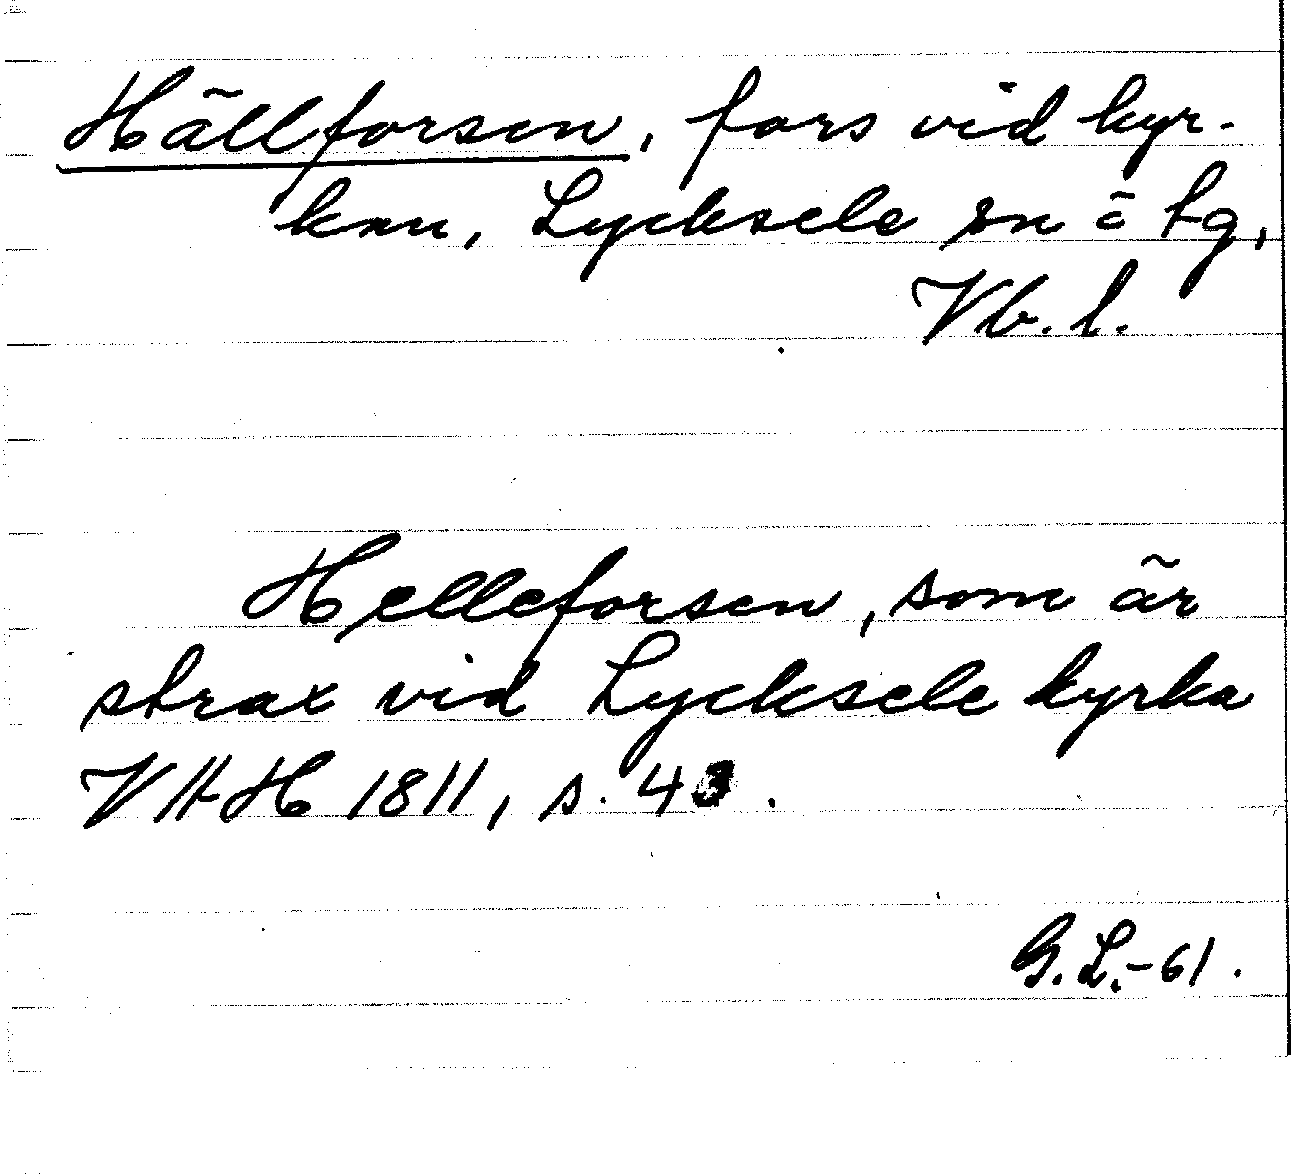 Hällforsen, fors vid kyr-
kan, Lycksele sn o tg,
Vb. l.
Helleforsen, som är
strax vid Lycksele kyrka
VAH 1811, s. 43.
G.L.-61.